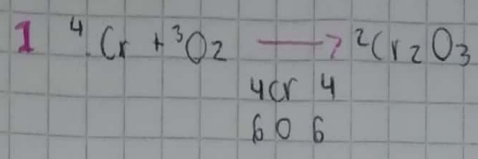 1 ⁴Cr + ³O₂ → ²Cr₂O₃
4Cr 4
6 O 6